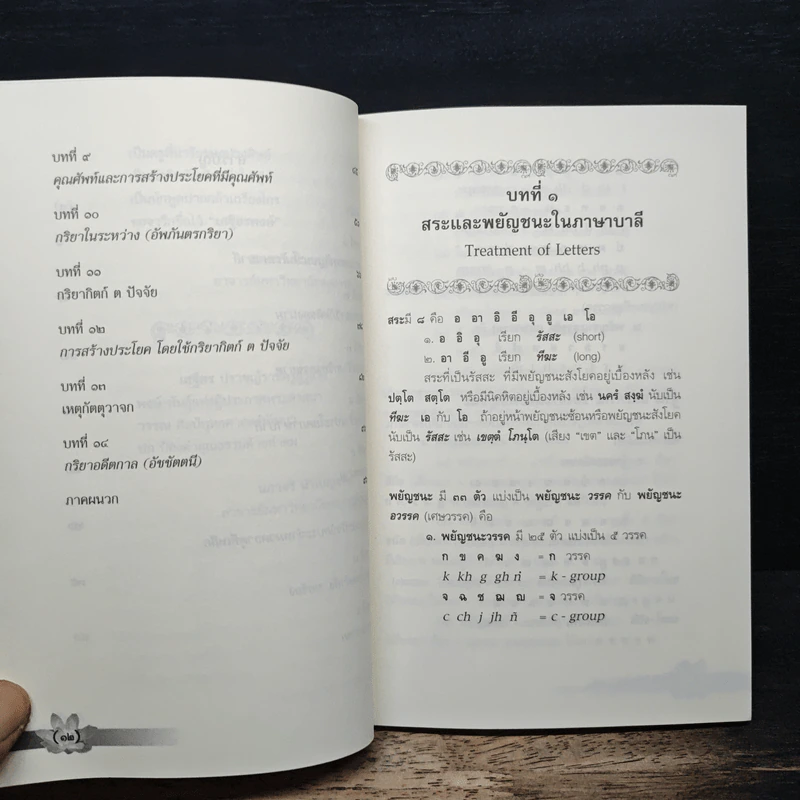 บทที่ ๙
คุณศัพท์และการสร้างประโยคที่มีคุณศัพท์
บทที่ ๑๐
กริยาในระหว่าง (อัพภันตรกริยา)
บทที่ ๑๑
กริยากิตก์ ต ปัจจัย
บทที่ ๑๒
การสร้างประโยค โดยใช้กริยากิตก์ ต ปัจจัย
บทที่ ๑๓
เหตุกัตตุวาจก
บทที่ ๑๔
กริยาอดีตกาล (อัชชัตตนี)
ภาคผนวก
(๑๒)
บทที่ ๑
สระและพยัญชนะในภาษาบาลี
Treatment of Letters
สระมี ๘ คือ อ อา อิ อี อุ อู เอ โอ
๑. อ อิ อุ เรียก รัสสะ (short)
๒. อา อี อู เรียก ทีฆะ (long)
สระที่เป็นรัสสะ ที่มีพยัญชนะสังโยคอยู่เบื้องหลัง เช่น
ปตฺโต สตฺโต หรือมีนิคหิตอยู่เบื้องหลัง เช่น นครํ สงฺฆํ นับเป็น
ทีฆะ เอ กับ โอ ถ้าอยู่หน้าพยัญชนะซ้อนหรือพยัญชนะสังโยค
นับเป็น รัสสะ เช่น เขตฺตํ โภนฺโต (เสียง "เขต" และ "โภน" เป็น
รัสสะ)
พยัญชนะ มี ๓๓ ตัว แบ่งเป็น พยัญชนะ วรรค กับ พยัญชนะ
อวรรค (เศษวรรค) คือ
๑. พยัญชนะวรรค มี ๒๕ ตัว แบ่งเป็น ๕ วรรค
ก ข ค ฆ ง = ก วรรค
k kh g gh ṅ = k - group
จ ฉ ช ฌ ญ = จ วรรค
c ch j jh ñ = c - group